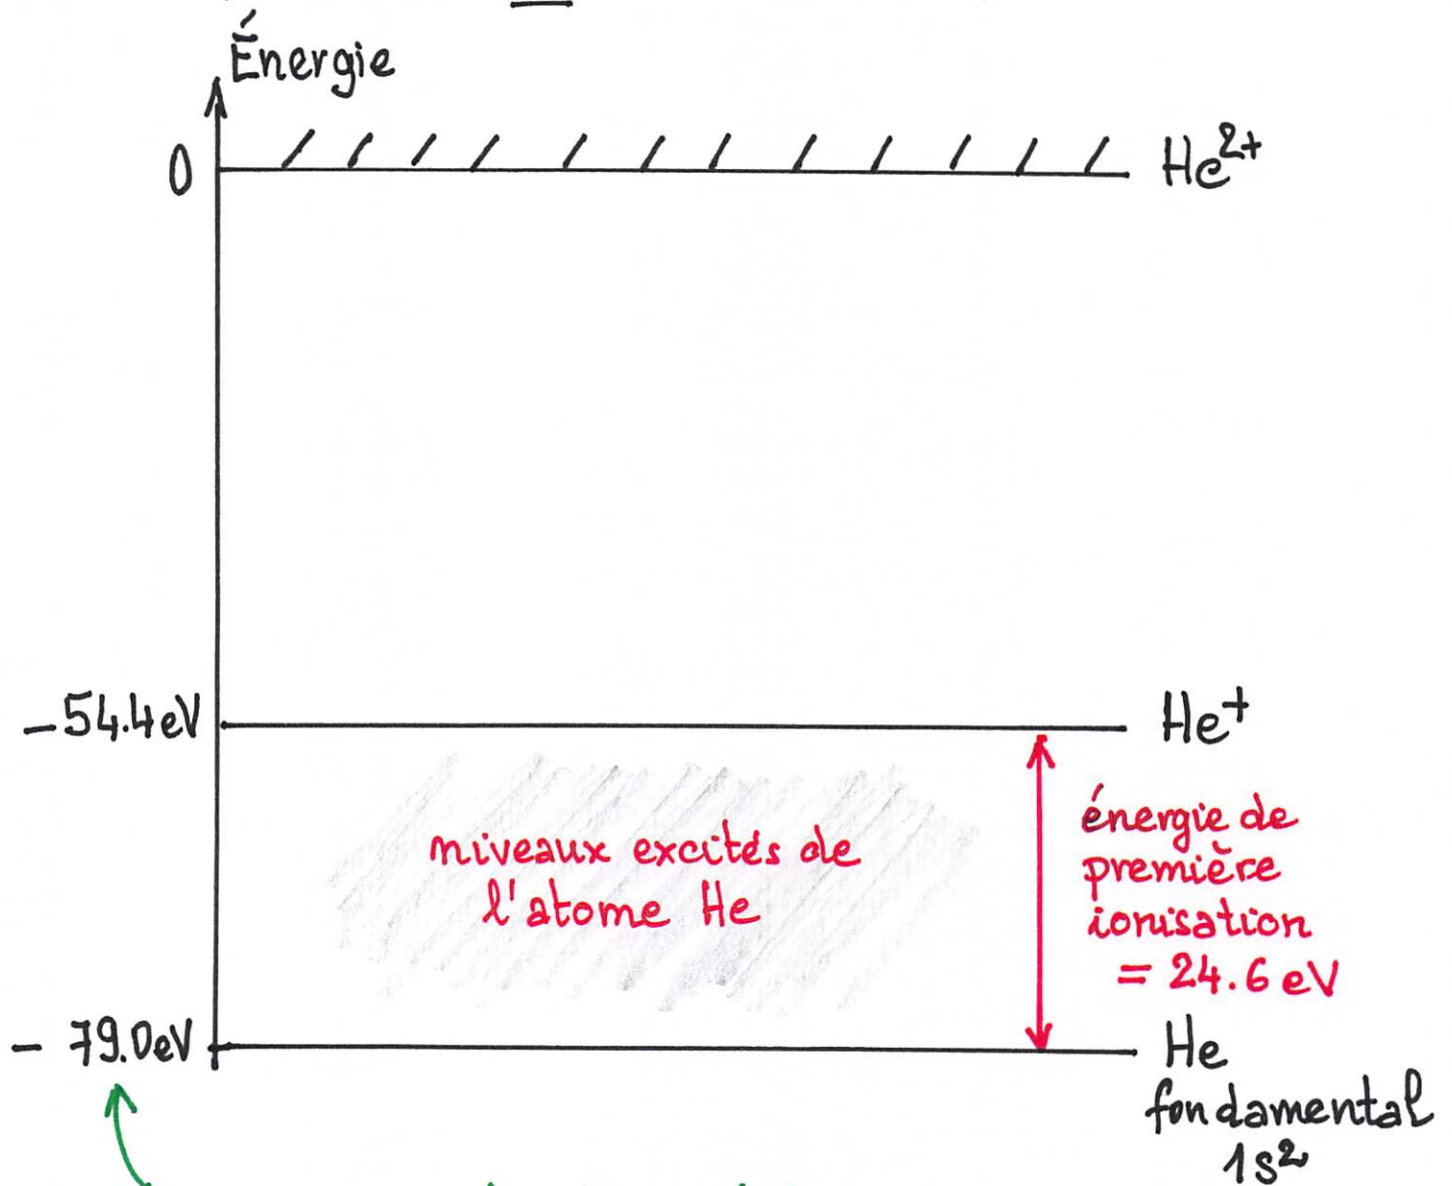 Énergie
0
He²⁺
-54.4eV
He⁺
niveaux excités de
l'atome He
énergie de
première
ionisation
= 24.6 eV
- 79.0eV
He
fondamental
1s²